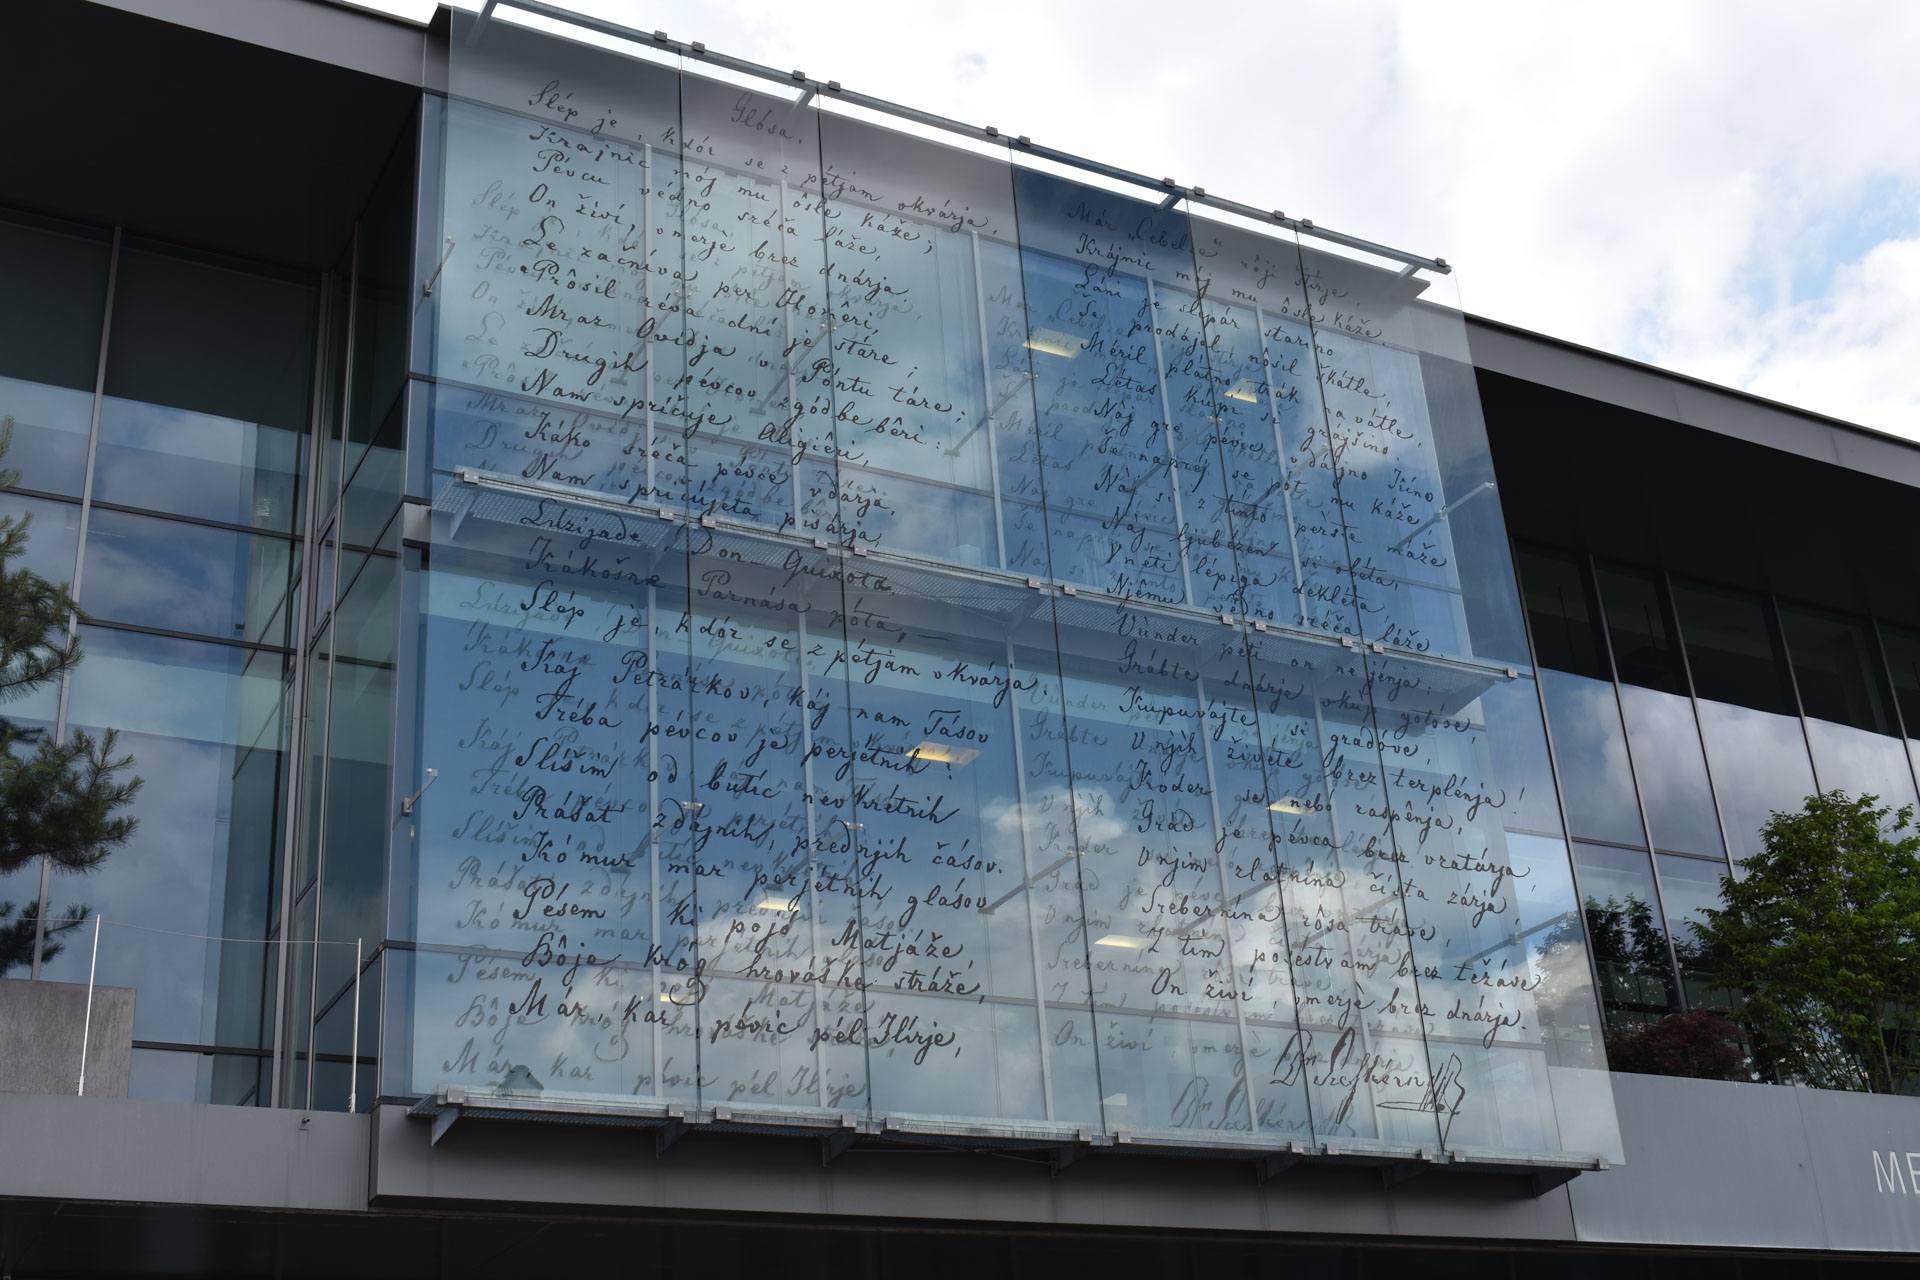 Glósa.
Slép je, kdór se z pétjam vkvárja,
Krajnic mój mu ôsle káže;
Pévcu védno sréča láže,
On živí, vmerjè brez dnárja.
Le začníva per Homêri,
Prôsil réva dni je stáre;
Mraz Ovídja v Póntu táre;
Drúgih pévcov zgódbe bêri:
Nam spričuje Aligiêri,
Káko sréča pévce vdárja,
Nam spričújeta pisárja,
Luzijade, Don-Quixota
Kákošne Parnása póta, —
Slép je, kdór se z pétjam vkvárja.
Káj Petrárkov, káj nam Tásov
Tréba pévcov je perjétnih:
Slíšim od butic nevkrétnih
Prášat zdájnih, prednjih čásov.
Kómur mar perjétnih glásov
Pésem ki pojó Matjáže,
Bôje krog hrováške stráže,
Már, kar pévic pél Ilírje,
Már „Čebelce“ rôji štírje,
Krájnic mój mu ôsle káže.
Láni je slepár staríno
Še prodájal nôsil škátle,
Méril plátno, trák na vátle,
Létas kupi si grájšino
Náj gre pévic v dájno Kíno
Še naprej se pót mu káže,
Náj si z tínto perste máže
Naj ljubézen si obéta,
Vneti lépiga dekléta,
Njêmu védno sréča láže.
Vùnder peti on ne jénja:
Grábte dnárje vkup gotóve,
Kupuvájte si gradóve,
V njih živíte brez terplénja!
Koder se nebo raspênja,
Grád je pévca brez vratárja,
V njim zlatnína čista zárja,
Srebernína rôsa tráve,
Z tim posestvam brez težáve
On živí, vmerjè brez dnárja.
ME